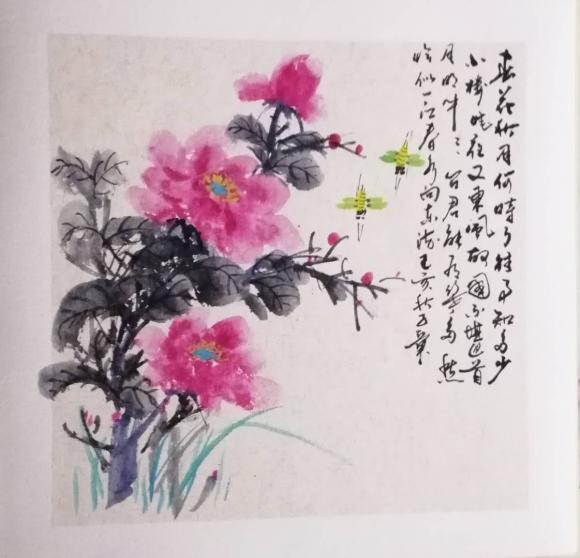 春花秋月何時了往事知多少
小樓昨夜又東風故國不堪迴首
月明中问君能有幾多愁
恰似一江春水向东流乙亥秋